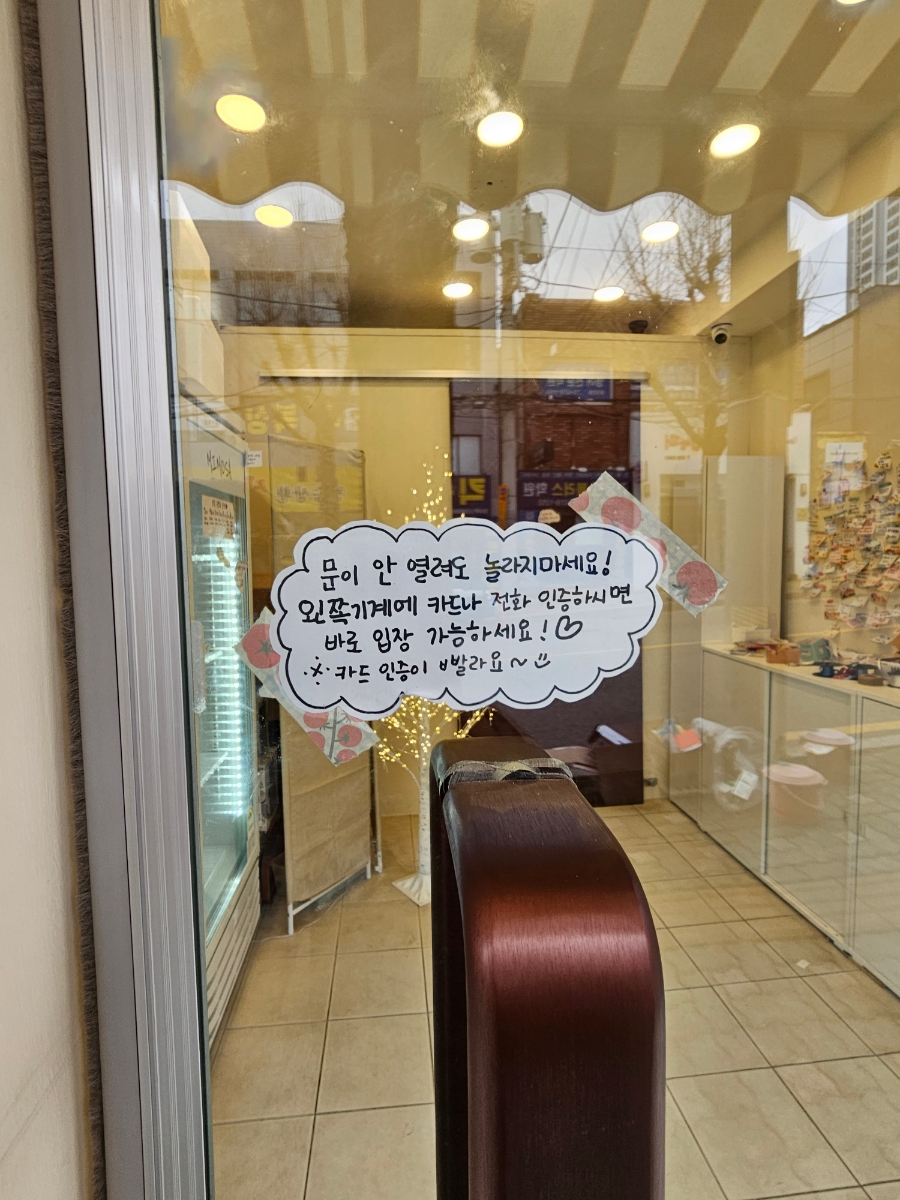 MIMOSA
문이 안 열려도 놀라지마세요!
왼쪽기계에 카드나 전화 인증하시면
바로 입장 가능하세요! ♡
※ 카드 인증이 빨라요~